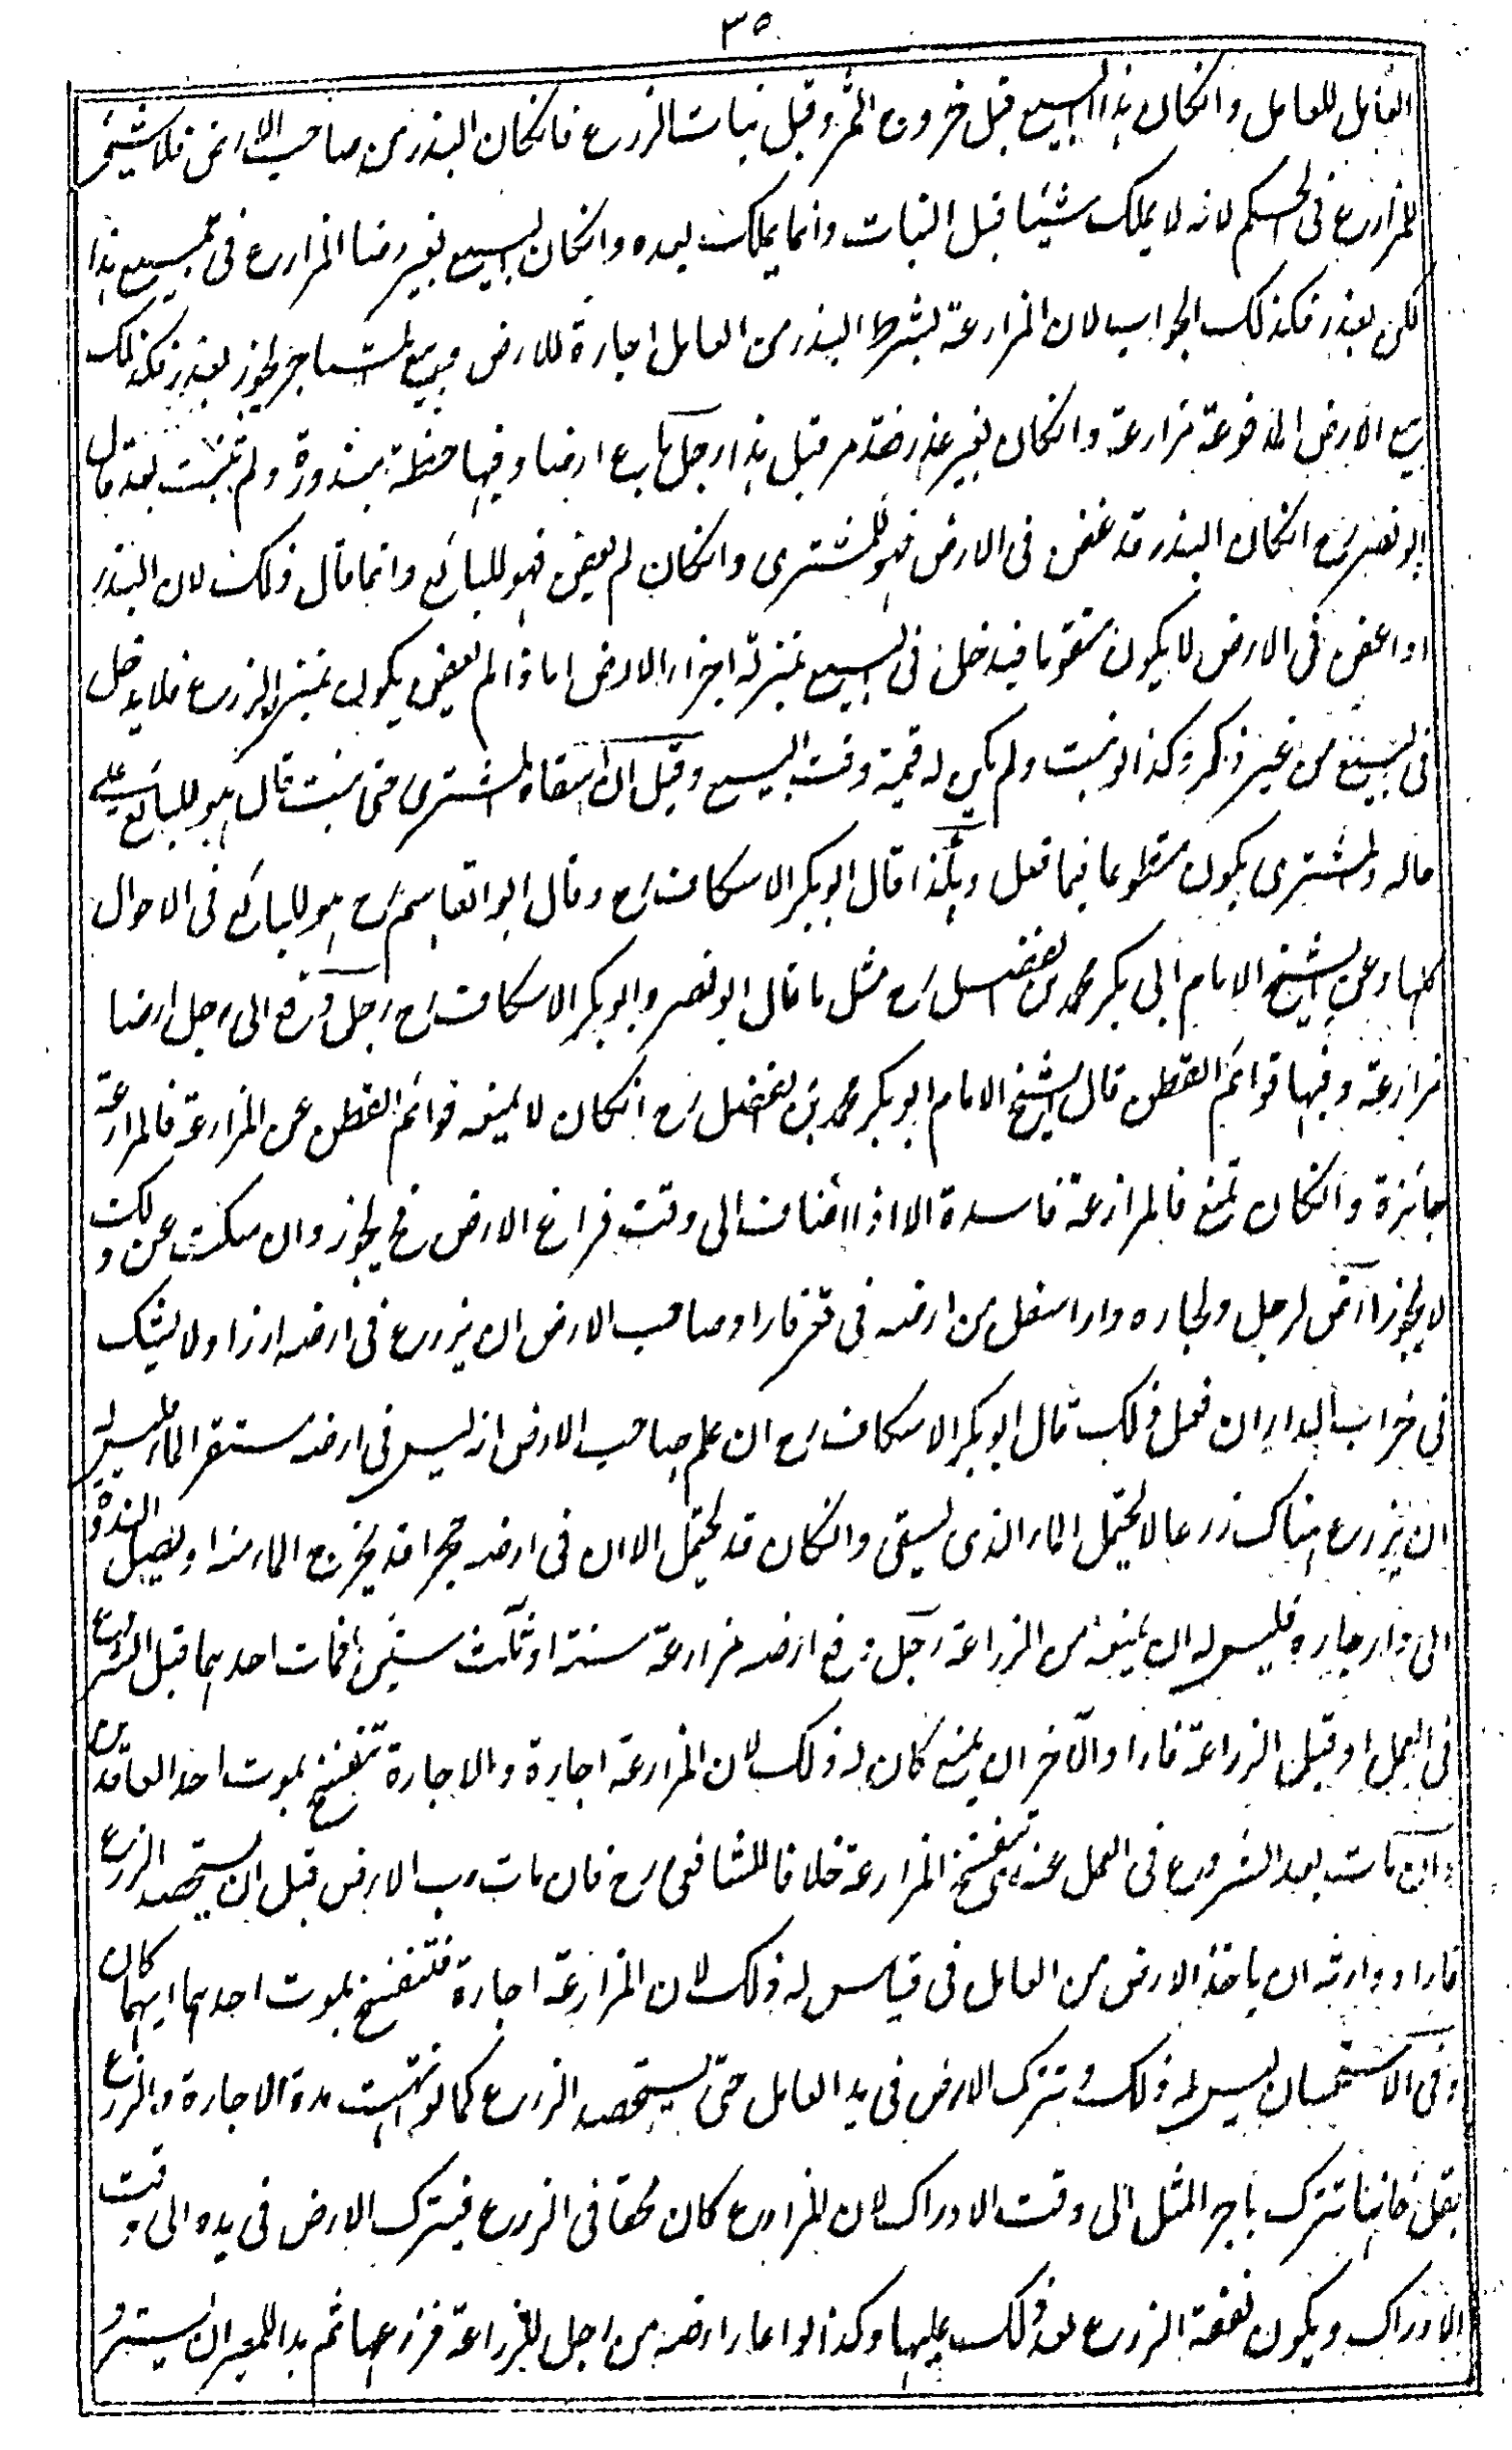 ٣٥
العامل للعامل وانكان هذا البيع قبل خروج الثمر وقبل نبات الزرع فانكان البذر من صاحب الارض فلا شيئ
للمزارع فى الحكم لانه لا يملك شيئا قبل النبات وانما يملك بعده وانكان البيع بغير رضا المزارع فى جميع هذا
لكن بعذر فكذلك الجواب لان المزارعة بشرط البذر من العامل اجارة للارض وبيع المستاجر يجوز بعذر فكذلك
بيع الارض المدفوعة مزارعة وانكان بغير عذر فقد مر قبل هذا رجل باع ارضا وفيها حنطة مبذورة ولم تنبت بعد قال
ابو نصر رح انكان البذر قد عفن فى الارض فهو للمشترى وانكان لم يعفن فهو للبائع وانما قال ذلك لان البذر
اذا عفن فى الارض لا يكون متقوما فيدخل فى البيع بمنزلة اجزاء الارض اما اذا لم يعفن يكون بمنزلة الزرع فلا يدخل
فى البيع من غير ذكر وكذا لو نبت ولم يكن له قيمة وقت البيع وقيل ان سقاه المشترى حتى نبت قال هو للبائع على
حاله والمشترى يكون متطوعا فيما فعل وهكذا قال ابو بكر الاسكاف رح وقال ابو القاسم رح هو للبائع فى الاحوال
كلها وعن الشيخ الامام ابى بكر محمد بن الفضل رح مثل ما قال ابو نصر وابو بكر الاسكاف رح رجل دفع الى رجل ارضا
مزارعة وفيها قوائم القطن قال الشيخ الامام ابو بكر محمد بن الفضل رح انكان لا يمنعه قوائم القطن عن المزارعة فالمزارعة
جائزة وانكان تمنع فالمزارعة فاسدة الا اذا اضاف الى وقت فراغ الارض فح يجوز وان سكت عن ذلك
لا يجوز ارض لرجل ولجاره دار اسفل من ارضه فى فاراد صاحب الارض ان يزرع فى ارضه ارزا ولا يشك
فى خراب الدار ان فعل ذلك قال ابو بكر الاسكاف رح ان علم صاحب الارض انه ليس فى ارضه مستقر الماء فليس له
ان يزرع هناك زرعا لا يحتمل الماء الذى يسقى وانكان قد يحتمل الا ان فى ارضه جحرا قد يخرج الماء منه او يصل النداوة
الى دار جاره فليس له ان يمنعه من الزراعة رجل دفع ارضه مزارعة سنة او ثلث سنين فمات احدهما قبل الشروع
فى العمل او قبل الزراعة فاراد الآخر ان يمنع كان له ذلك لان المزارعة اجارة والاجارة تنفسخ بموت احد العاقدين
وان مات بعد الشروع فى العمل عندنا تنفسخ المزارعة خلافا للشافعى رح فان مات رب الارض قبل ان يستحصد الزرع
فاراد وارثه ان ياخذ الارض من العامل فى قياس له ذلك لان المزارعة اجارة فتنفسخ بموت احدهما ايهما كان
وفى الاستحسان ليس له ذلك وتترك الارض فى يد العامل حتى يستحصد الزرع كما لو انتهت مدة الاجارة والزرع
بقل فانها تترك باجر المثل الى وقت الادراك لان المزارع كان محقا فى الزرع فيترك الارض فى يده الى وقت
الادراك ويكون نفقة الزرع بعد ذلك عليها وكذا لو اعار ارضه من رجل للزراعة فزرعها ثم بدا للمعير ان يسترد